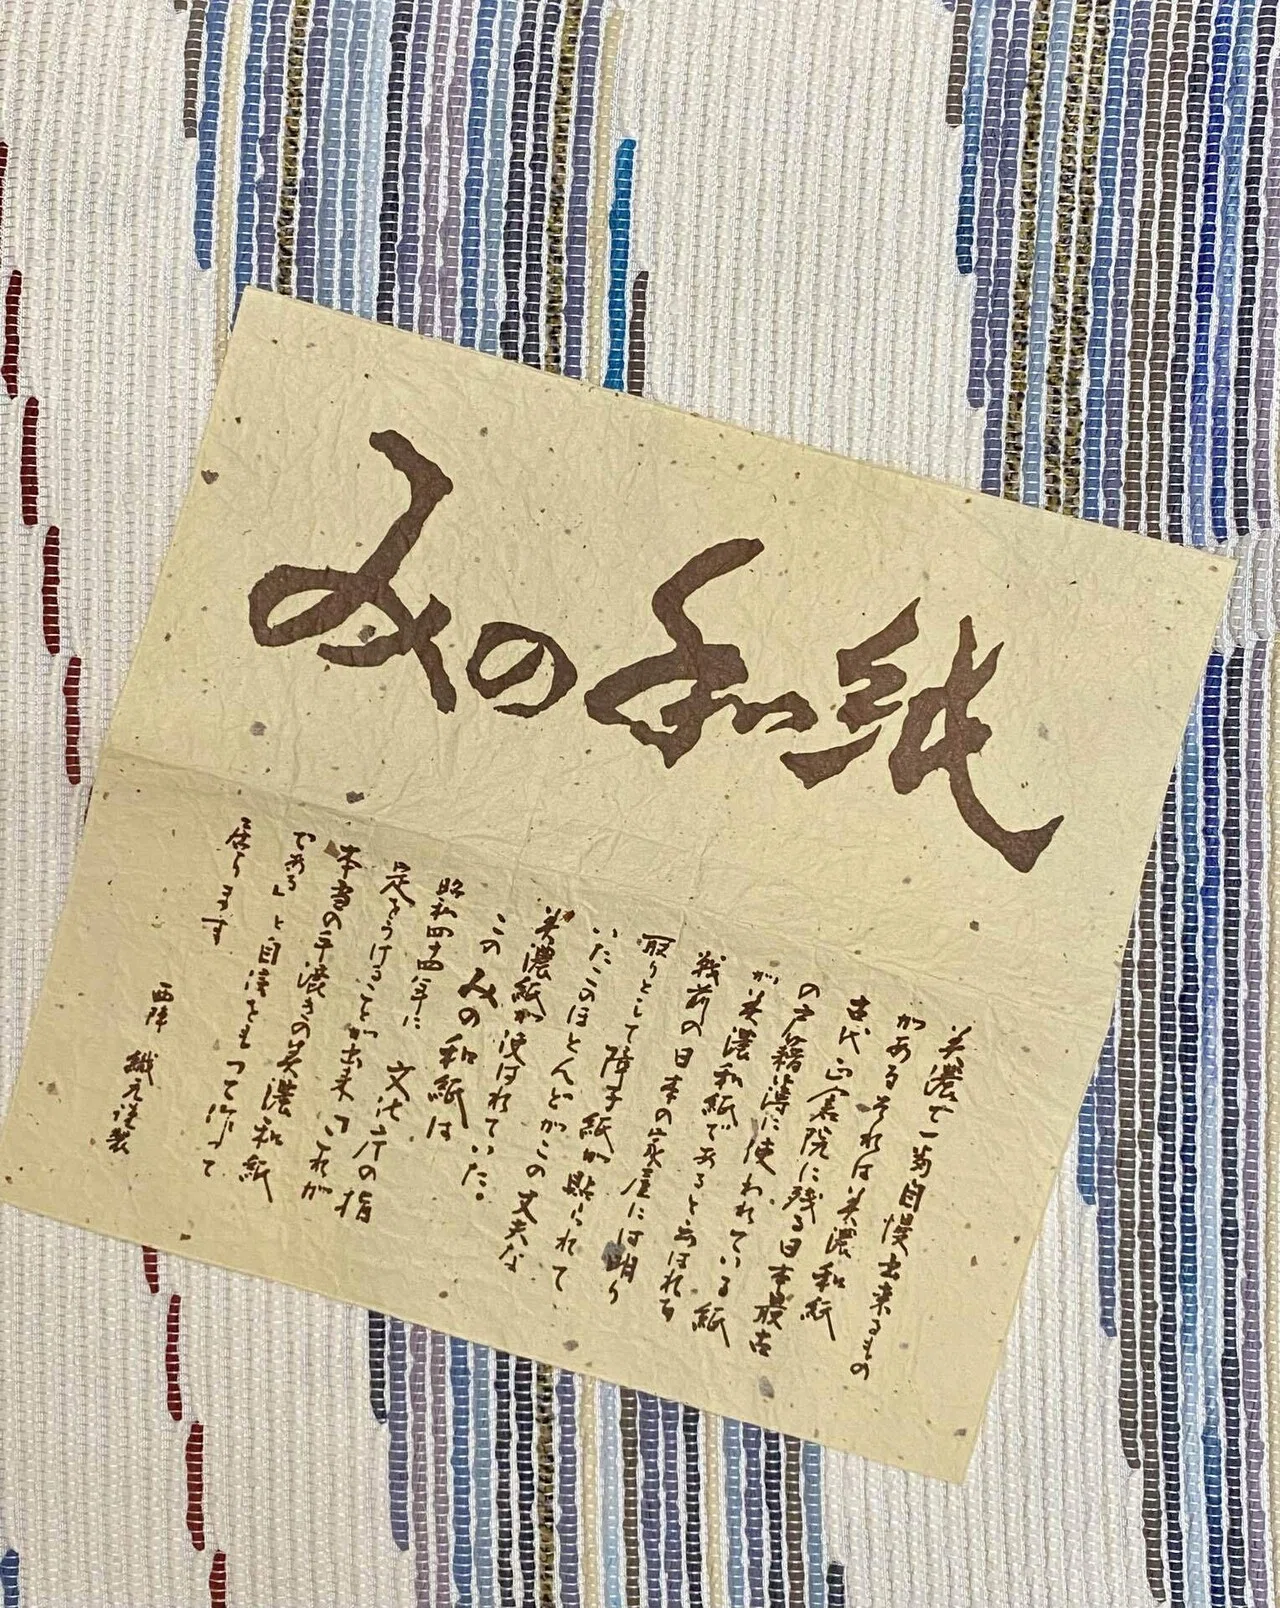 みの和紙
美濃で一番自慢出来るもの
があるそれは美濃和紙
古代正倉院に残る日本最古
の戸籍簿に使われている紙
が美濃和紙であると云はれる
戦前の日本の家屋には明り
取りとして障子紙が貼られて
いたこのほとんどがこの丈夫な
美濃紙が使はれていた。
このみの和紙は
昭和四十四年に文化庁の指
定をうけることが出来「これが
本当の手漉きの美濃和紙
である」と自信をもって作って
居ります
西陣 織元謹製